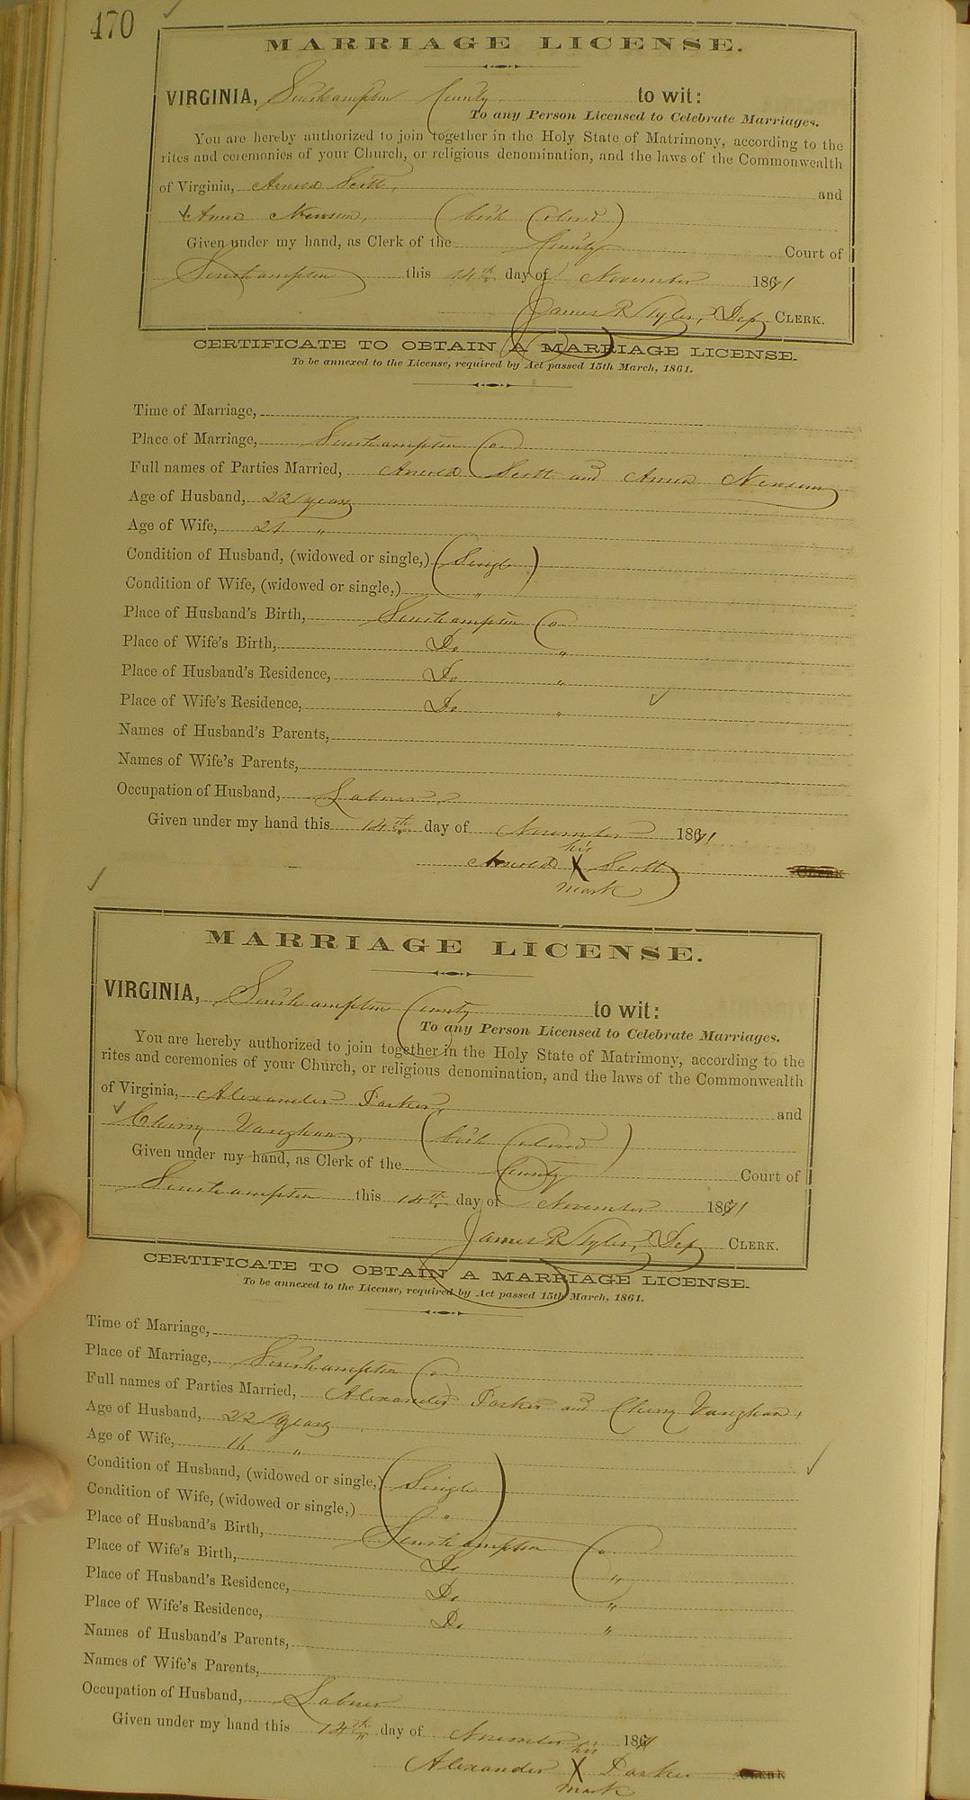 470
MARRIAGE LICENSE.
VIRGINIA, Southampton County to wit:
To any Person Licensed to Celebrate Marriages.
You are hereby authorized to join together in the Holy State of Matrimony, according to the
rites and ceremonies of your Church, or religious denomination, and the laws of the Commonwealth
of Virginia, Arnold Scott, and
Anna Newsum, (both Colored)
Given under my hand, as Clerk of the County Court of
Southampton this 14th day of November 1871
James R Tyler, Dep CLERK.
CERTIFICATE TO OBTAIN A MARRIAGE LICENSE.
To be annexed to the License, required by Act passed 15th March, 1861.
Time of Marriage,
Place of Marriage, Southampton Co
Full names of Parties Married, Arnold Scott and Anna Newsum
Age of Husband, 22 years
Age of Wife, 21 "
Condition of Husband, (widowed or single,) (Single)
Condition of Wife, (widowed or single,) "
Place of Husband's Birth, Southampton Co
Place of Wife's Birth, Do "
Place of Husband's Residence, Do "
Place of Wife's Residence, Do "
Names of Husband's Parents,
Names of Wife's Parents,
Occupation of Husband, Laborer
Given under my hand this 14th day of November 1871
his
Arnold X Scott CLERK
mark
MARRIAGE LICENSE.
VIRGINIA, Southampton County to wit:
To any Person Licensed to Celebrate Marriages.
You are hereby authorized to join together in the Holy State of Matrimony, according to the
rites and ceremonies of your Church, or religious denomination, and the laws of the Commonwealth
of Virginia, Alexander Parker, and
Cherry Vaughan, (both Colored)
Given under my hand, as Clerk of the County Court of
Southampton this 14th day of November 1871
James R Tyler, Dep CLERK.
CERTIFICATE TO OBTAIN A MARRIAGE LICENSE.
To be annexed to the License, required by Act passed 15th March, 1861.
Time of Marriage,
Place of Marriage, Southampton Co
Full names of Parties Married, Alexander Parker and Cherry Vaughan,
Age of Husband, 22 years
Age of Wife, 16 "
Condition of Husband, (widowed or single,) (Single)
Condition of Wife, (widowed or single,) "
Place of Husband's Birth, Southampton Co
Place of Wife's Birth, Do "
Place of Husband's Residence, Do "
Place of Wife's Residence, Do "
Names of Husband's Parents,
Names of Wife's Parents,
Occupation of Husband, Laborer
Given under my hand this 14th day of November 1871
his
Alexander X Parker CLERK
mark